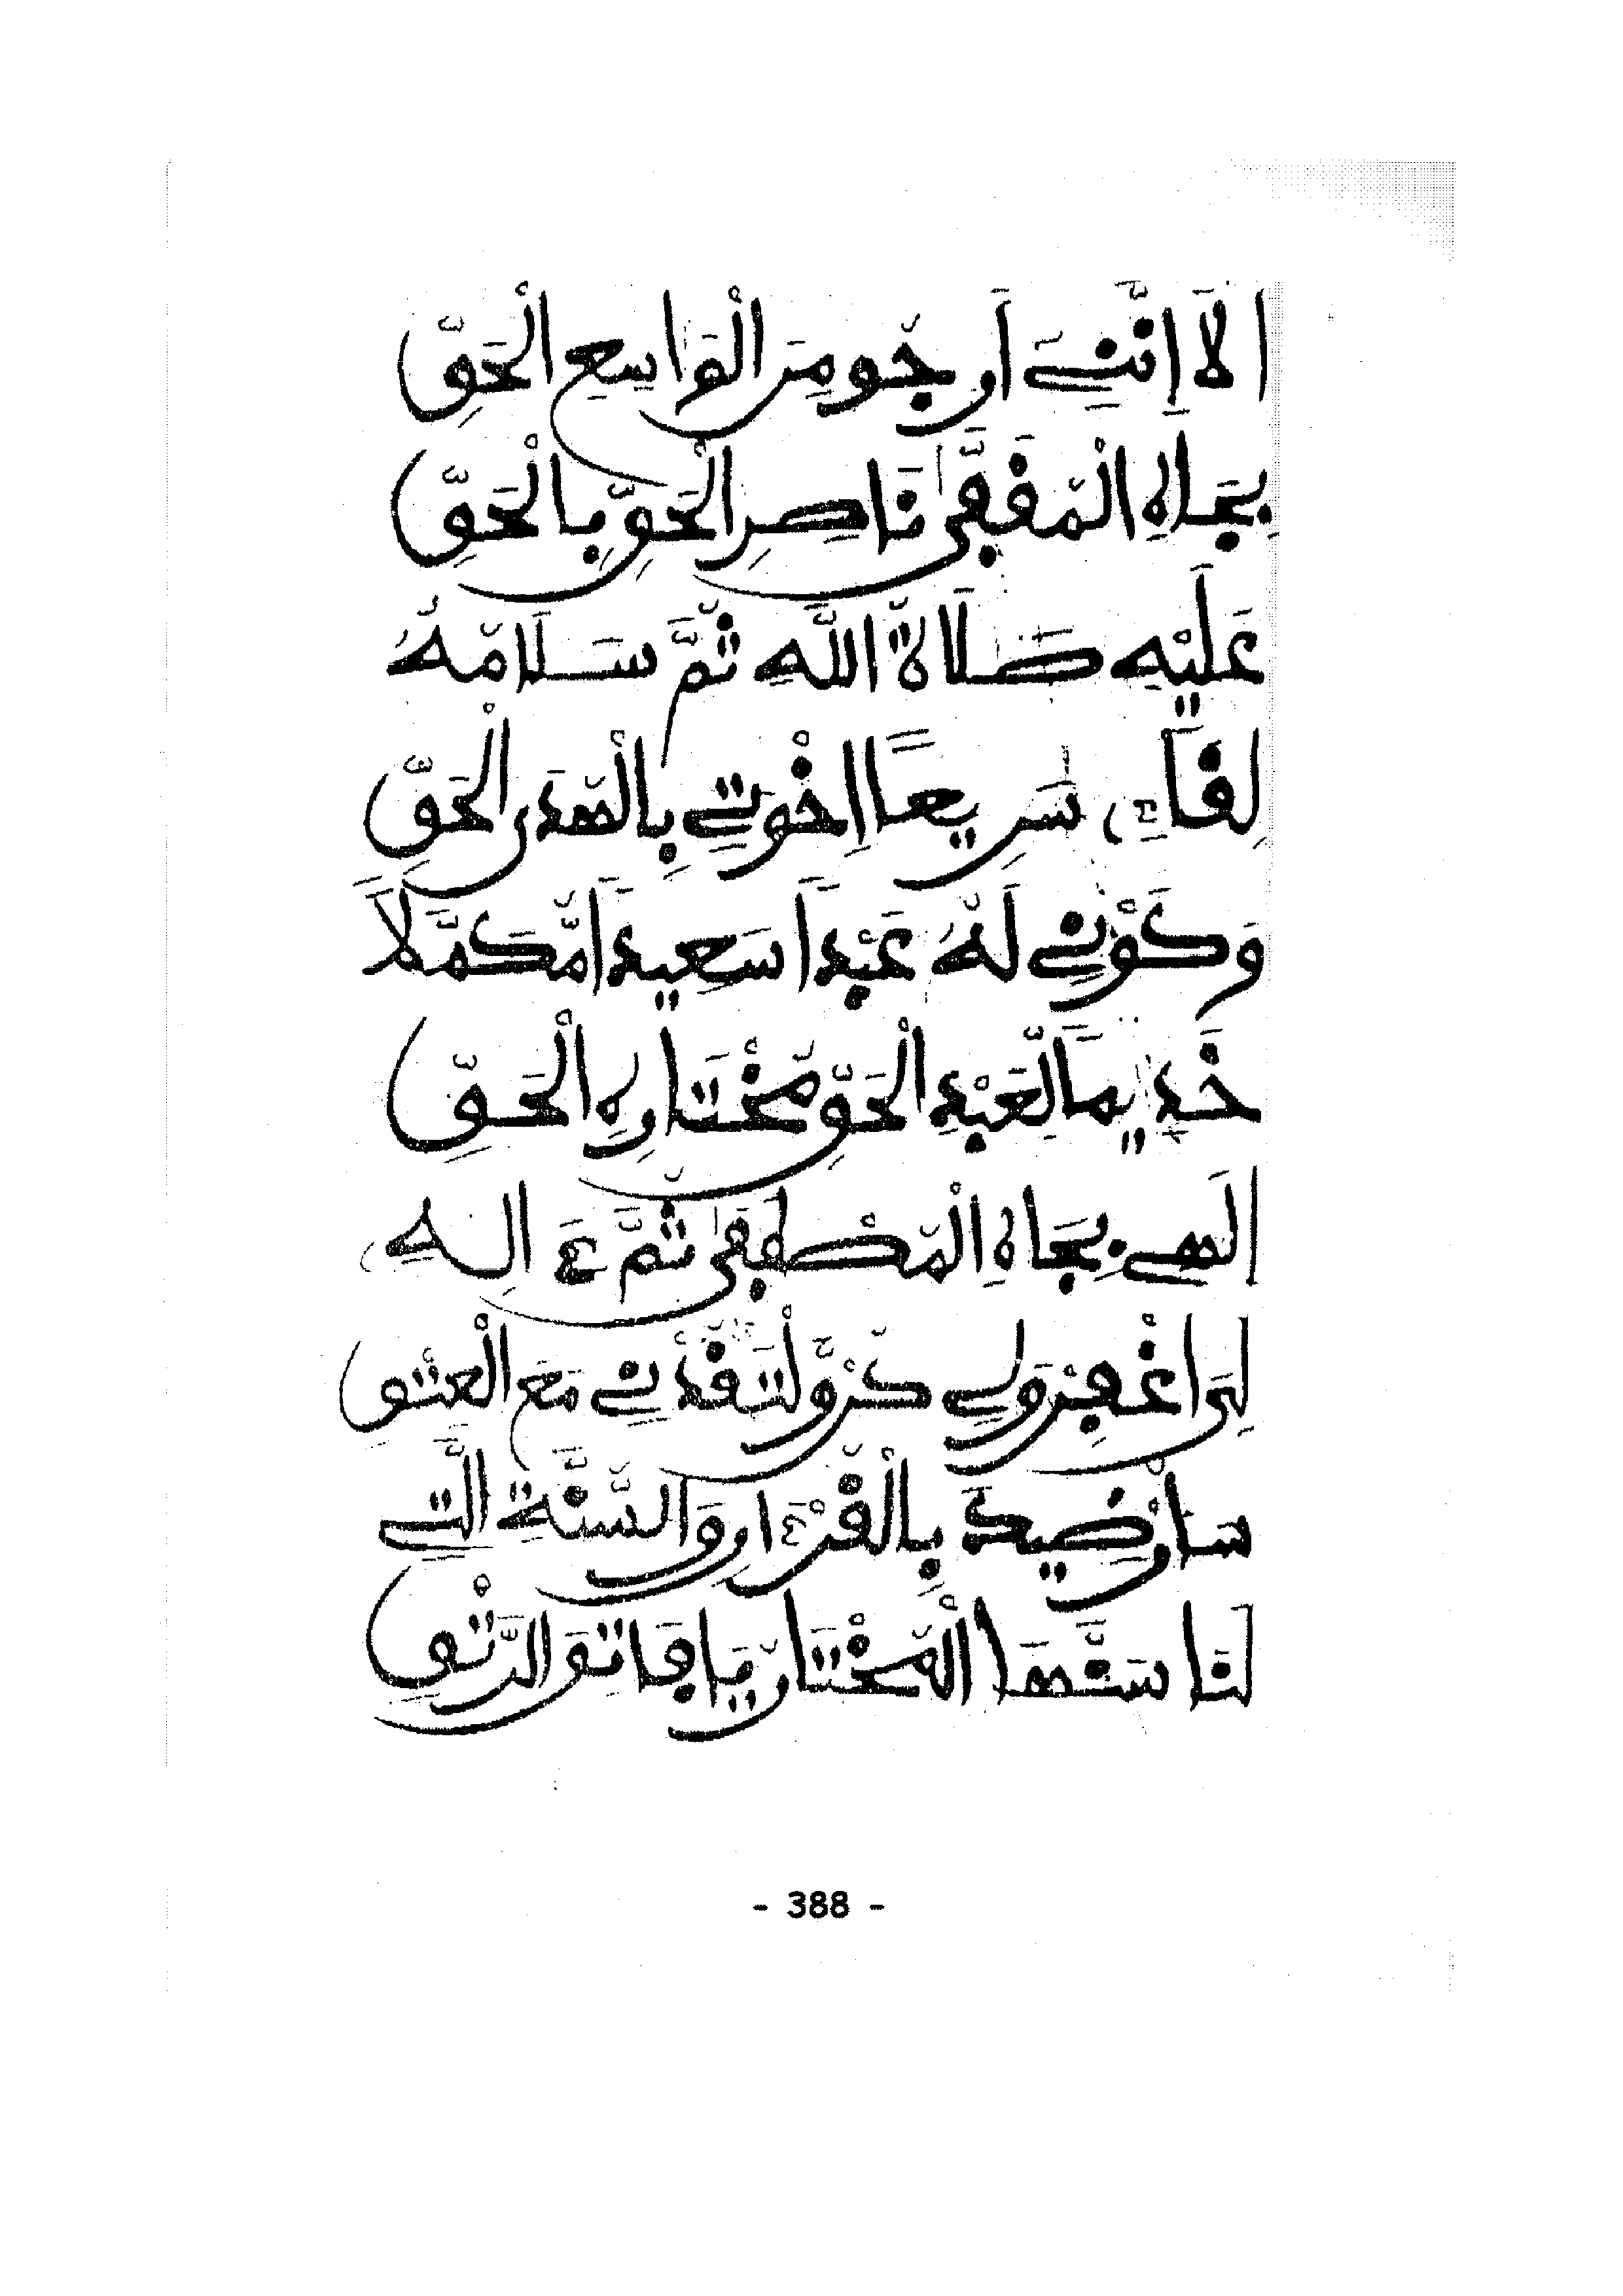 اَلَا إِنَّنِي أَرْجُو مِنَ الْوَاسِعِ الْحَقِّ
بِجَاهِ الْمُقَفَّى نَاصِرِ الْحَقِّ بِالْحَقِّ
عَلَيْهِ صَلَاةُ اللَّهِ ثُمَّ سَلَامُهُ
لِقَاءً سَرِيعًا إِخْوَتِي بِالْهُدَى الْحَقِّ
وَكَوْنِي لَهُ عَبْدًا سَعِيدًا مُكَمَّلًا
خَدِيمًا لِعَبْدِ الْحَقِّ مُخْتَارِهِ الْحَقِّ
إِلَهِي بِجَاهِ الْمُصْطَفَى ثُمَّ ءَالِهِ
لِيَ اغْفِرْ وَلِي كُنْ وَلْتَقُدْنِي مَعَ الْعِتْقِ
سَأَرْضِيكَ بِالْقُرْءَانِ وَالسُّنَّةِ الَّتِي
لَنَا سَنَّهَا الْمُخْتَارُ يَا فَاتِقَ الرَّتْقِ
- 388 -